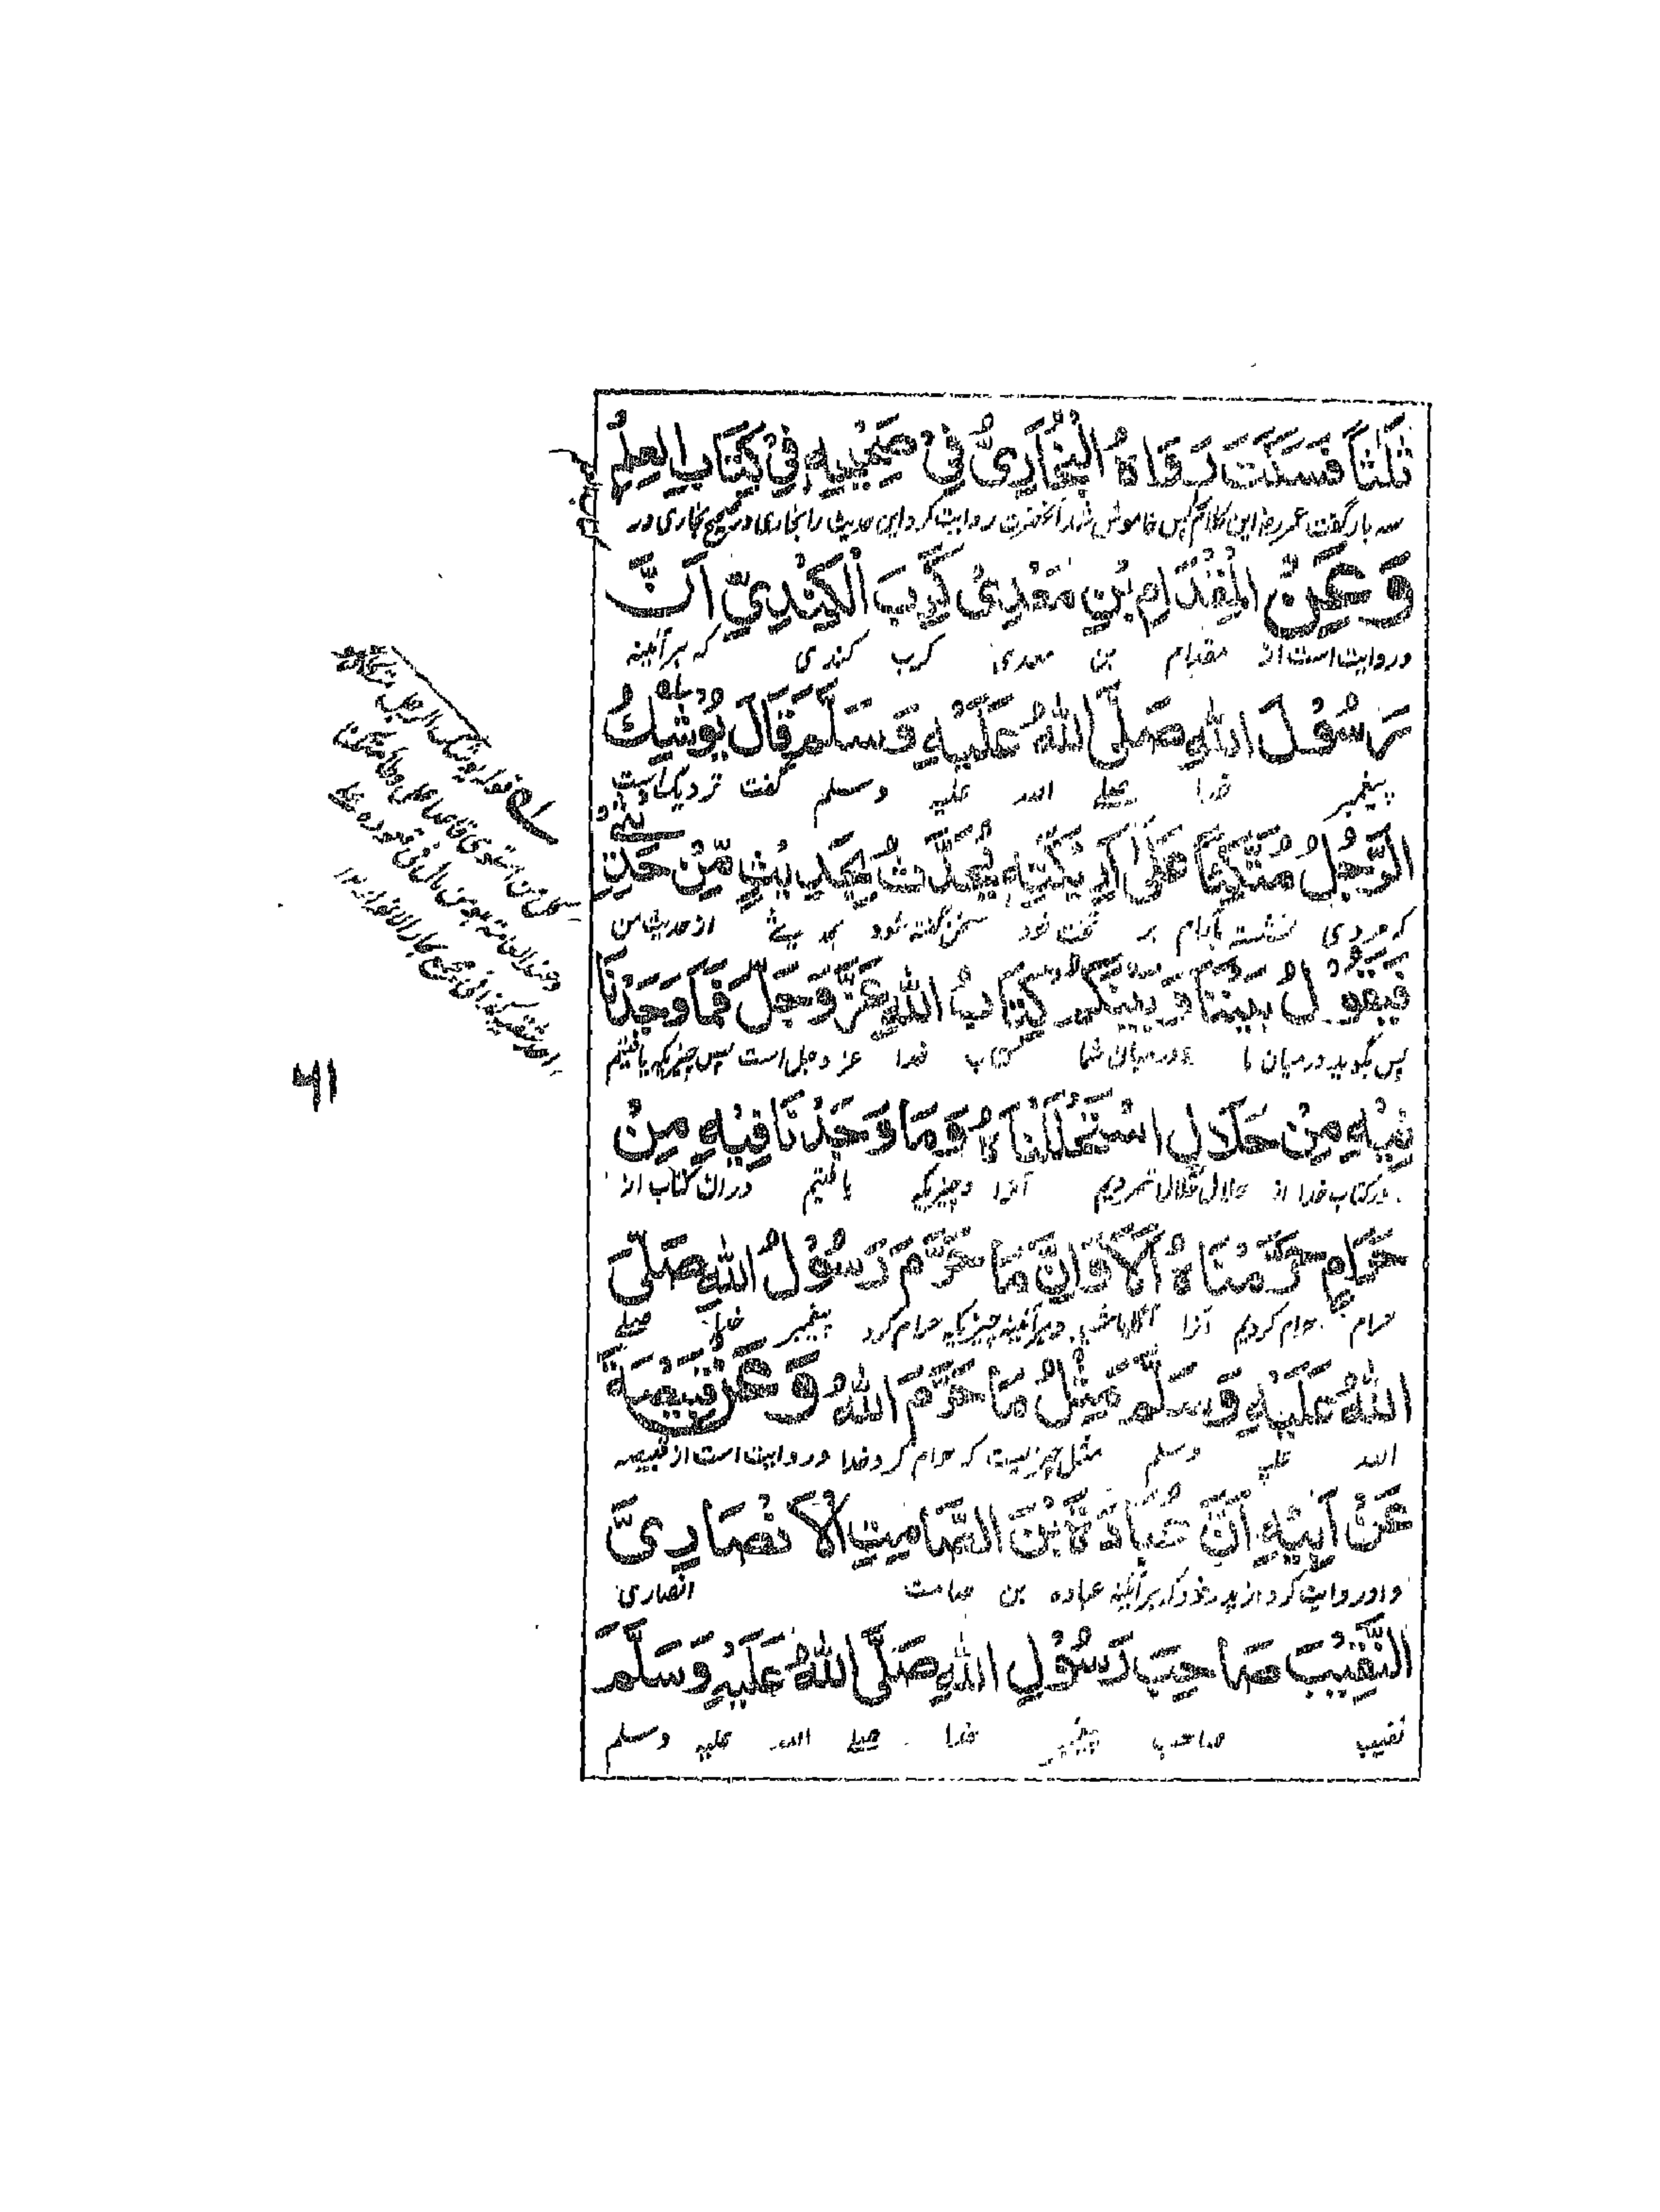 ثَلٰثًا فَسَكَتَ رَوَاهُ الْبُخَارِيُّ فِيْ صَحِيْحِهِ فِيْ كِتَابِ الْعِلْمِ
سه بار گفت عمر رض این کلام پس خاموش شد آنحضرت روایت کرد این حدیث را بخاری در صحیح بخاری در
وَعَنْ الْمِقْدَامِ بْنِ مَعْدِيْ كَرِبَ الْكِنْدِيِّ اَنَّ
وروایت است از مقدام بن معدی کرب کندی که هرآئینه
رَسُوْلَ اللهِ صَلَّى اللهُ عَلَيْهِ وَسَلَّمَ قَالَ يُوْشِكُ
پیغمبر خدا صلے الله علیه وسلم گفت نزدیک است
الرَّجُلُ مُتَّكِئًا عَلٰى اَرِيْكَتِهِ يُحَدَّثُ بِحَدِيْثٍ مِّنْ حَدِيْثِيْ
که مردی نشسته بآرام بر تخت خود سخن گفته شود بحدیثے از حدیث من
فَيَقُوْلُ بَيْنَنَا وَبَيْنَكُمْ كِتَابُ اللهِ عَزَّ وَجَلَّ فَمَا وَجَدْنَا
پس بگوید درمیان ما و درمیان شما کتاب خدا عز وجل است پس چیزیکه یافتیم
فِيْهِ مِنْ حَلَالٍ اسْتَحْلَلْنَاهُ وَمَا وَجَدْنَا فِيْهِ مِنْ
در کتاب خدا از حلال حلال شمردیم آنرا وچیزیکه یافتیم دران کتاب از
حَرَامٍ حَرَّمْنَاهُ اَلَا وَاِنَّ مَا حَرَّمَ رَسُوْلُ اللهِ صَلَّى
حرام حرام کردیم آنرا آگاه باشید وهرآئینه چیزیکه حرام کرد پیغمبر خدا صلے
اللهُ عَلَيْهِ وَسَلَّمَ مِثْلُ مَا حَرَّمَ اللهُ وَعَنْ قَبِيْصَةَ
الله علیه وسلم مثل چیزیست که حرام کرد خدا وروایت است از قبیصه
عَنْ اَبِيْهِ اَنَّ عُبَادَةَ بْنَ الصَّامِتِ الْاَنْصَارِيَّ
واو روایت کرد از پدر خود که هرآئینه عباده بن صامت انصاری
النَّقِيْبَ صَاحِبَ رَسُوْلِ اللهِ صَلَّى اللهُ عَلَيْهِ وَسَلَّمَ
نقیب صاحب پیغمبر خدا صلے الله علیه وسلم
قوله یوشک الرجل متکئا
۴۱